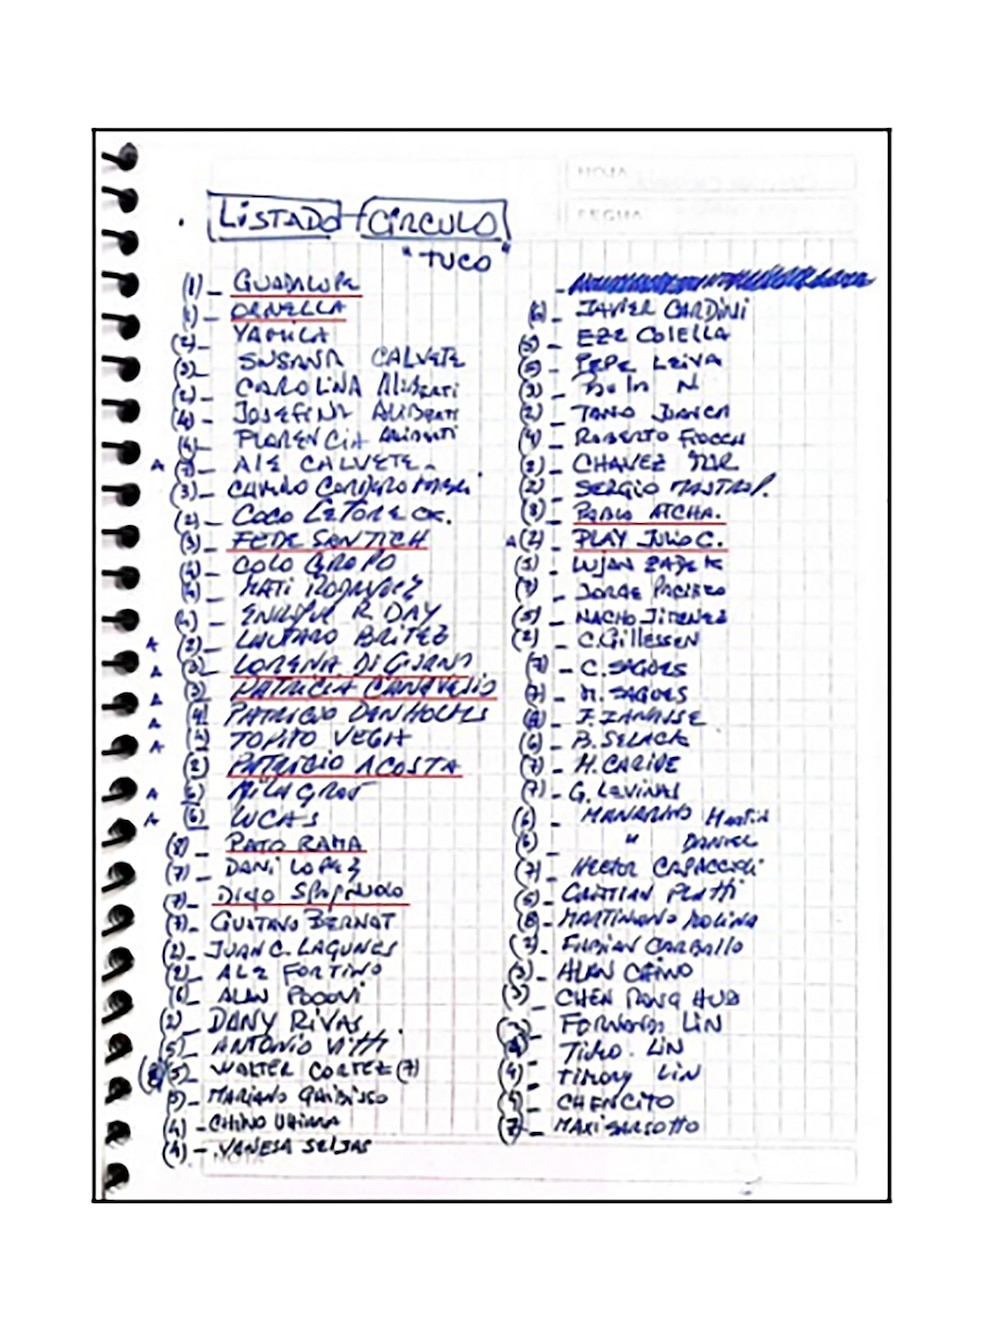 HOJA
FECHA
LISTADO CIRCULO
"TUCO"
(1) _ GUADALUPE
(1) _ ORNELLA
(2) _ YAMILA
(3) _ SUSANA CALVETE
(2) _ CAROLINA Aliberti
(4) _ JOSEFINA Aliberti
(4) _ FLORENCIA Aliberti
_ ALE CALVETE.
(3) _
(2) _ COCO
(3) _ FEDE SANTICH
(4) _ COLO GROPO
(4) _ MATI RODRIGUEZ
(4) _ ENRIQUE R DAY
(2) _ LAUTARO BRITEZ
_ LORENA DI GIORNO
(3) _ PATRICIA CANAVESIO
(4) _ PATRICIO DENHOLMS
_ TOMITO VEGA
(2) _ PATRICIO ACOSTA
_ MILAGROS
(6) _ LUCAS
(8) _ PATO RAMA
(7) _ DANI LOPEZ
(7) _ DIEGO SPAGNUOLO
(7) _ GUSTAVO BERNAT
(2) _ JUAN C. LAGUNES
(2) _ ALE FORTINO
(6) _ ALAN POGOVI
(2) _ DANY RIVAS
(5) _ ANTONIO VITTI
(5) _ WALTER CORTEZ (7)
(5) _ MARIANO
(4) _ CHINO
(4) _ VANESA SEIJAS
NOTA
(6) _ JAVIER CARDINI
(5) _ EZE COLELLA
(5) _ PEPE LEIVA
(3) _
(2) _ TANO
(4) _ ROBERTO FIOCCA
(2) _ CHAVEZ
(2) _ SERGIO MASTROP.
(3) _ PABLO ATCHA.
(2) _ PLAY JULIO C.
_ LUJAN
_ JORGE
(5) _ NACHO JIMENEZ
(2) _ C. Gillessen
(7) _ C. SAGUES
(7) _ M. SAGUES
_ F. ZANUSSE
(6) _ B. SELACK
(7) _ M. CARIDE
(7) _ G. LEVINAS
(6) _ MANARINO Martin
(6) _ " DANIEL
(7) _ HECTOR CAPACCIOLI
(6) _ PLATTI
(8) _ MARTINIANO MOLINA
_ FABIAN CARBALLO
(3) _ ALAN
(3) _ CHEN
_ FORNANDO LIN
_ TIMO. LIN
(4) _ TIMOY LIN
_ CHENCITO
(7) _ MAXI SARSOTTO